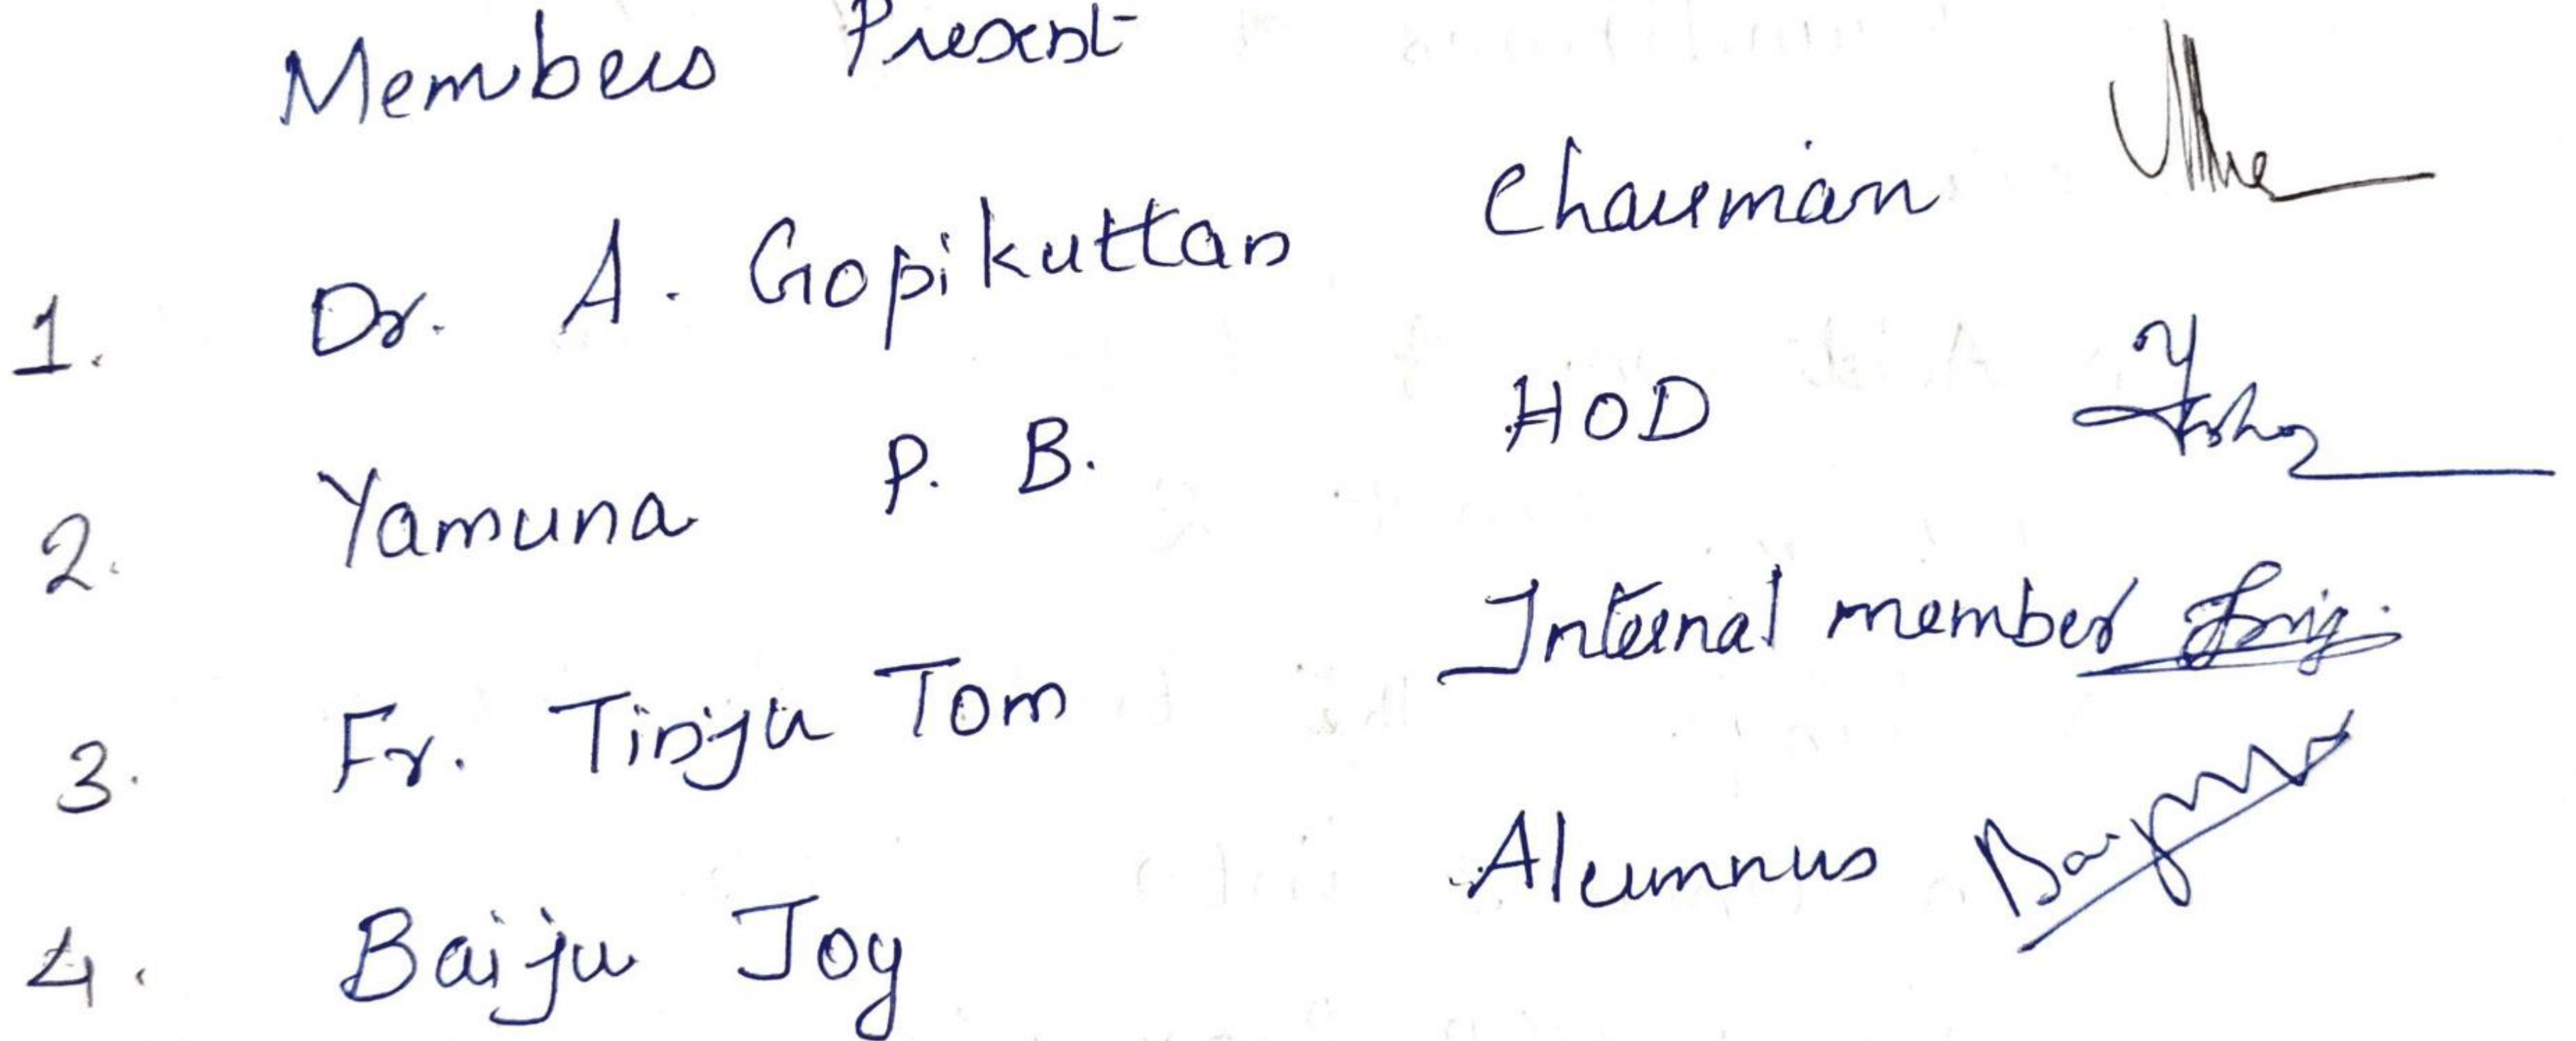 Members Present
1. Dr. A. Gopikuttan Chairman
2. Yamuna P. B. HOD
3. Fr. Tinju Tom Internal member
4. Baiju Joy Alumnus